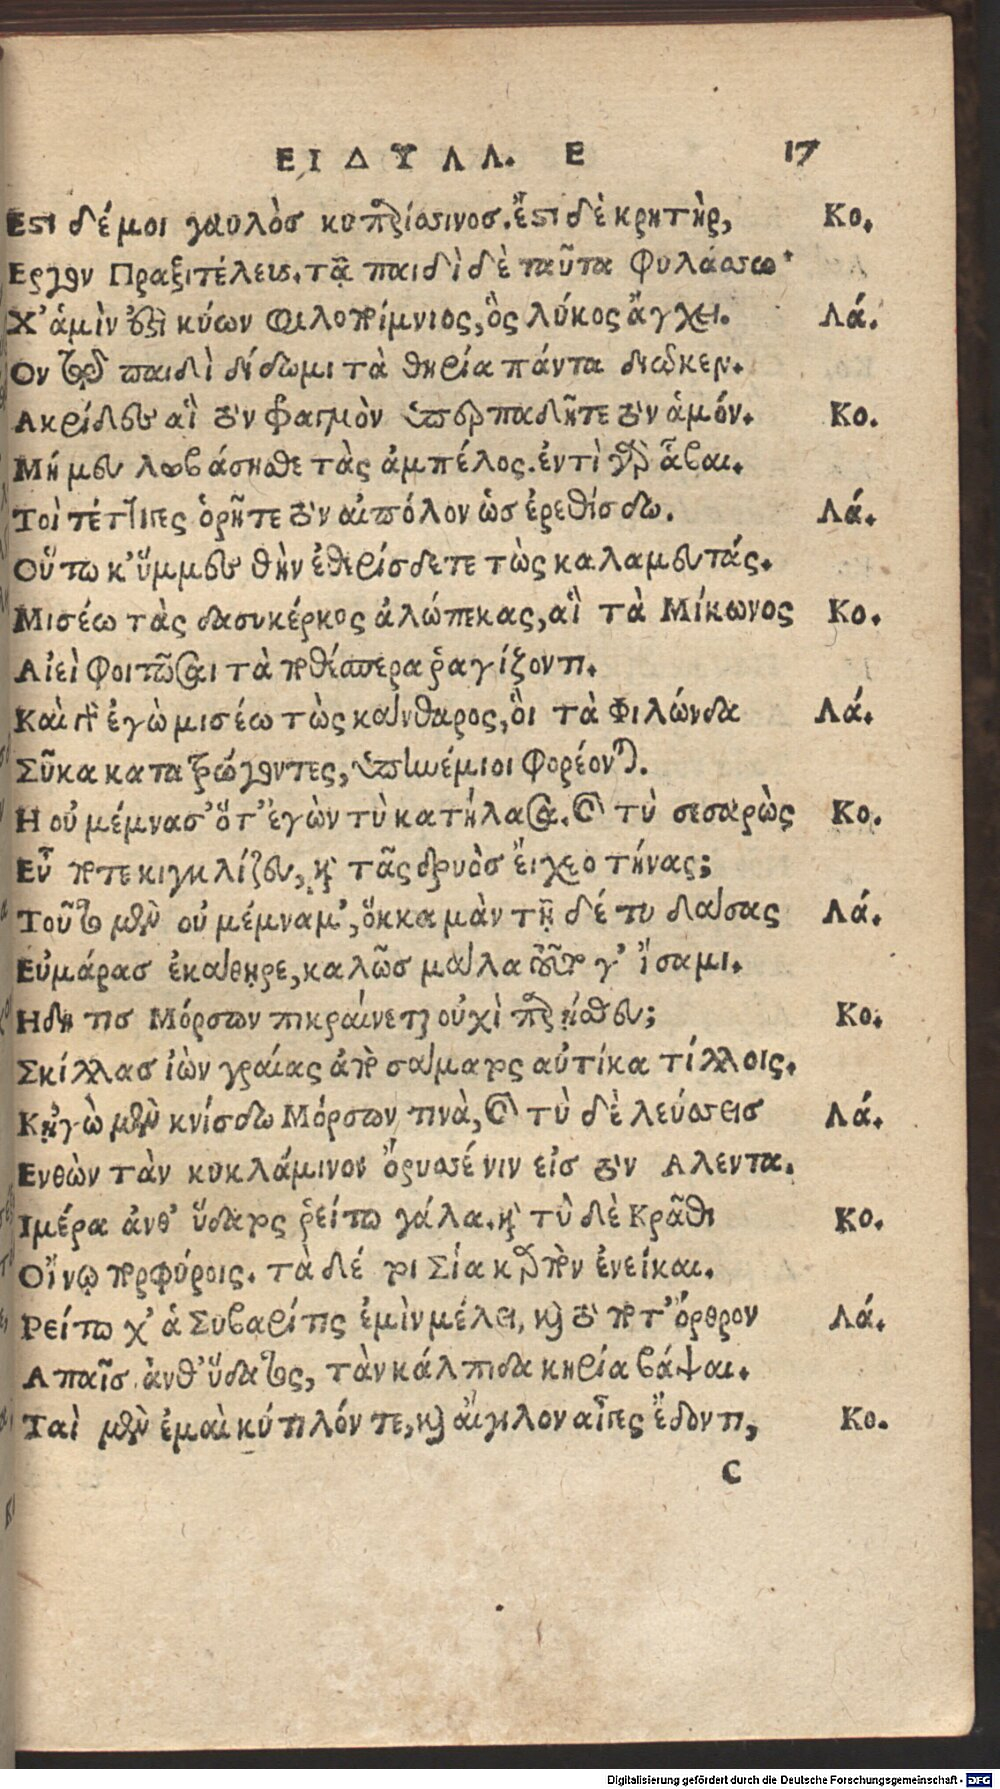 ΕΙΔΥΛΛ. Ε 17
Εστι δέ μοι γαυλὸσ κυπαρίσσινοσ. ἔστι δὲ κρητὴρ, Κο.
Εργον Πραξιτέλευς. τᾷ παιδὶ δὲ ταῦτα φυλάσσω.
Χ' ἁμὶν ἐστὶ κύων φιλοποίμνιος, ὃς λύκος ἄγχει. Λά.
Ον τῷ παιδὶ δίδωμι τὰ θηρία πάντα διώκεν.
Ακρίδες αἳ τὸν φραγμὸν ὑπερπαδῆτε τὸν ἁμόν. Κο.
Μή μευ λωβάσησθε τὰς ἀμπέλος. ἐντὶ γὰρ ἇβαι.
Τοὶ τέττιγες ὁρῆτε τὸν αἰπόλον ὡσ ἐρεθίσδω. Λά.
Οὕτω κ' ὔμμες θὴν ἐθερίσδετε τὼς καλαμευτάς.
Μισέω τὰς δασυκέρκος ἀλώπεκας, αἳ τὰ Μίκωνος Κο.
Αἰεὶ φοιτῶσαι τὰ ποθέσπερα ῥαγίζοντι.
Καὶ γὰρ ἐγὼ μισέω τὼς κανθαρος, ὃι τὰ Φιλώνδα Λά.
Σῦκα κατατρώγοντες, ὑπηνέμιοι φορέονται.
Η οὐ μέμνασ' ὅτ' ἐγὼν τὺ κατήλασα. καὶ τὺ σεσαρὼς Κο.
Εὖ ποτεκιγκλίζευ, καὶ τᾶς δρυὸσ ἔιχεο τήνας;
Τοῦτο μὲν οὐ μέμναμ', ὅκκα μὰν τῇ δέ τυ δασας Λά.
Εὐμάρασ ἐκαθηρε, καλῶσ μαλα τοῦτο γ' ἴσαμι.
Ηδη τισ Μόρσων πικραίνεται οὐχὶ παρῄσθευ; Κο.
Σκίλλασ ἰὼν γραίας ἀπὸ σαματος αὐτίκα τίλλοις.
Κἠγὼ μὲν κνίσδω Μόρσων τινὰ, καὶ τὺ δὲ λεύσσεισ Λά.
Ενθὼν τὰν κυκλάμινον ὄρυσσέ νιν εἰσ τὸν Αλεντα.
Ιμέρα ἀνθ' ὕδατος ῥείτω γάλα. καὶ τὺ δὲ Κρᾶθι Κο.
Οἴνῳ πορφύροις. τὰ δέ τοι Σία καρπὸν ἐνείκαι.
Ρείτω χ' ἁ Συβαρίτις ἐμὶν μέλει, καὶ τὸ ποτ' ὄρθρον Λά.
Α παῖσ ἀνθ' ὕδατος, τὰν κάλπιδα κηρία βάψαι.
Ταὶ μὲν ἐμαὶ κύτιλόν τε, καὶ αἴγιλον αἶγες ἔδοντι, Κο.
C
Digitalisierung gefördert durch die Deutsche Forschungsgemeinschaft - DFG